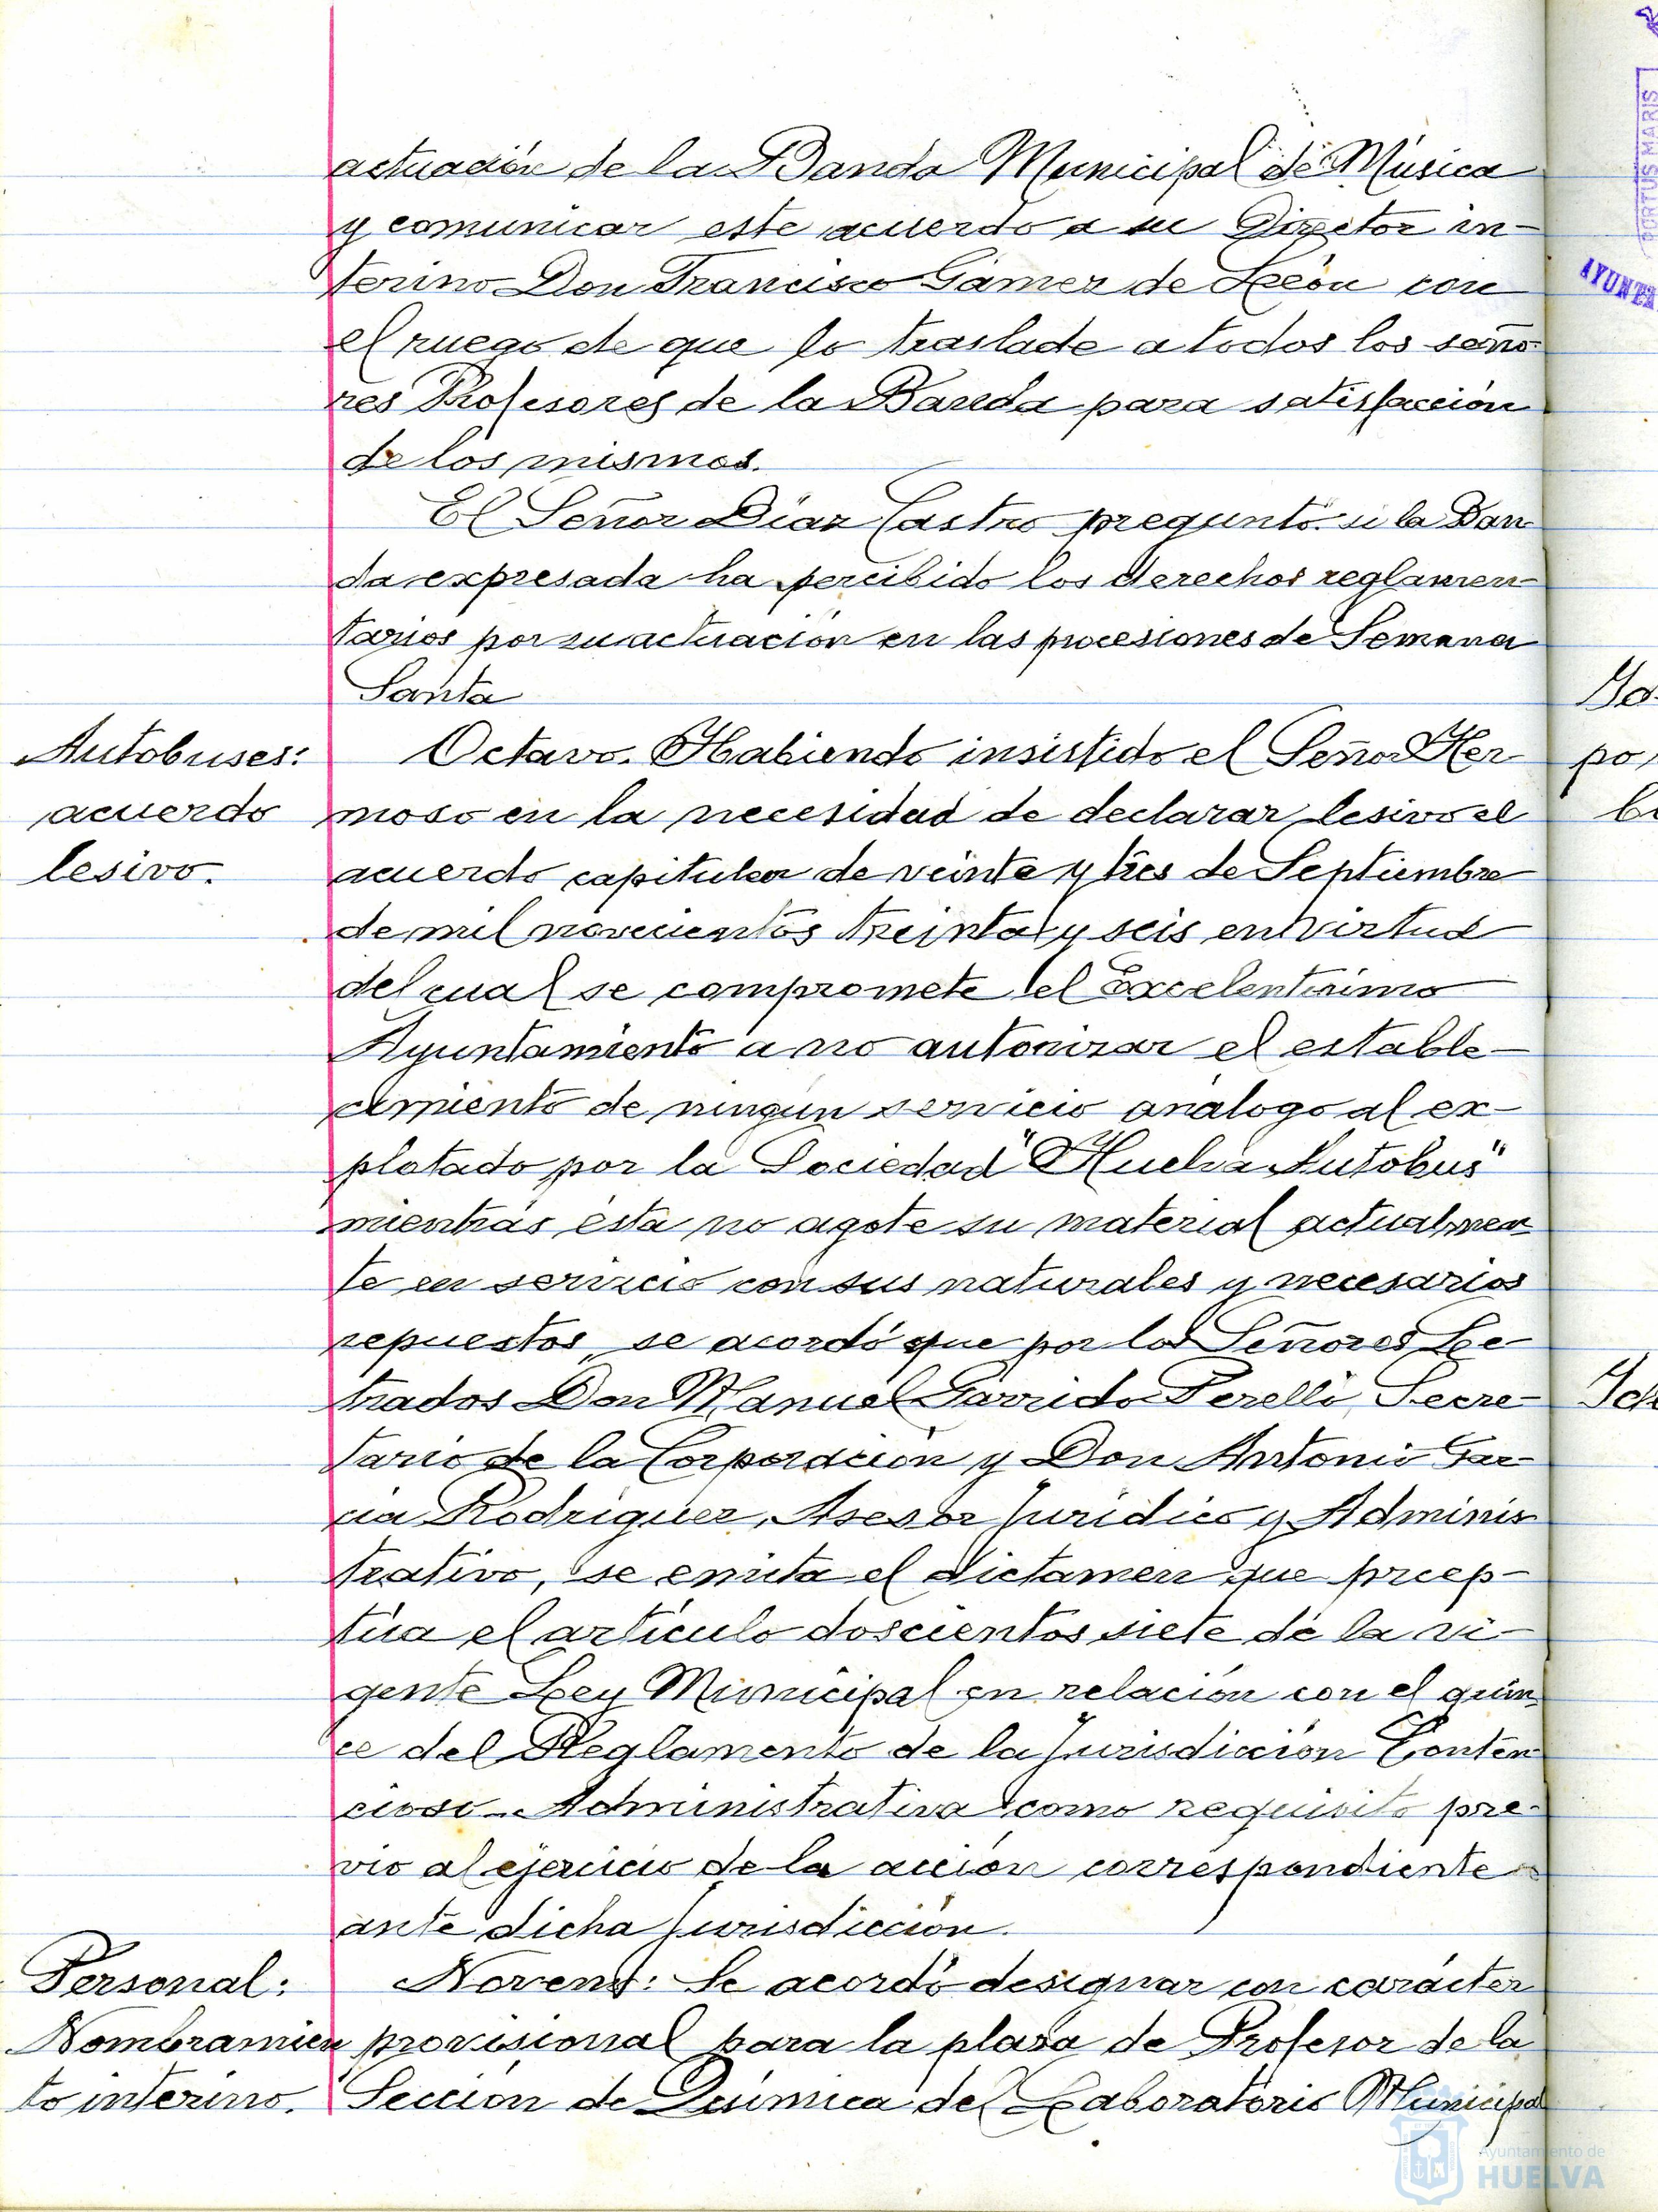 actuación de la Banda Municipal de Música
y comunicar este acuerdo a su Director in-
terino Don Francisco Gámez de León con
el ruego de que lo traslade a todos los seño-
res Profesores de la Banda para satisfacción
de los mismos.
El Señor Díaz Castro preguntó si la Ban
da expresada ha percibido los derechos reglamen-
tarios por su actuación en las procesiones de Semana
Santa
Autobuses:
acuerdo
lesivo.
Octavo. Habiendo insistido el Señor Her-
moso en la necesidad de declarar lesivo el
acuerdo capitular de veinte y tres de Septiembre
de mil novecientos treinta y seis en virtud
del cual se compromete el Excelentísimo
Ayuntamiento a no autorizar el estable-
cimiento de ningún servicio análogo al ex-
plotado por la Sociedad "Huelva Autobus"
mientras ésta no agote su material actualmen
te en servicio con sus naturales y necesarios
repuestos, se acordó que por los Señores Le-
trados Don Manuel Garrido Perelló, Secre-
tario de la Corporación y Don Antonio Gar-
cía Rodríguez, Asesor Jurídico y Adminis
trativo, se emita el dictamen que precep-
túa el artículo doscientos siete de la vi-
gente Ley Municipal en relación con el quin
ce del Reglamento de la Jurisdicción Conten
cioso-Administrativa como requisito pre-
vio al ejercicio de la acción correspondiente
ante dicha Jurisdicción.
Personal:
Nombramien
to interino.
Noveno: Se acordó designar con carácter
provisional para la plaza de Profesor de la
Sección de Química del Laboratorio Municipal
PORTUS MARIS
AYUNTA
po
Ayuntamiento de
HUELVA